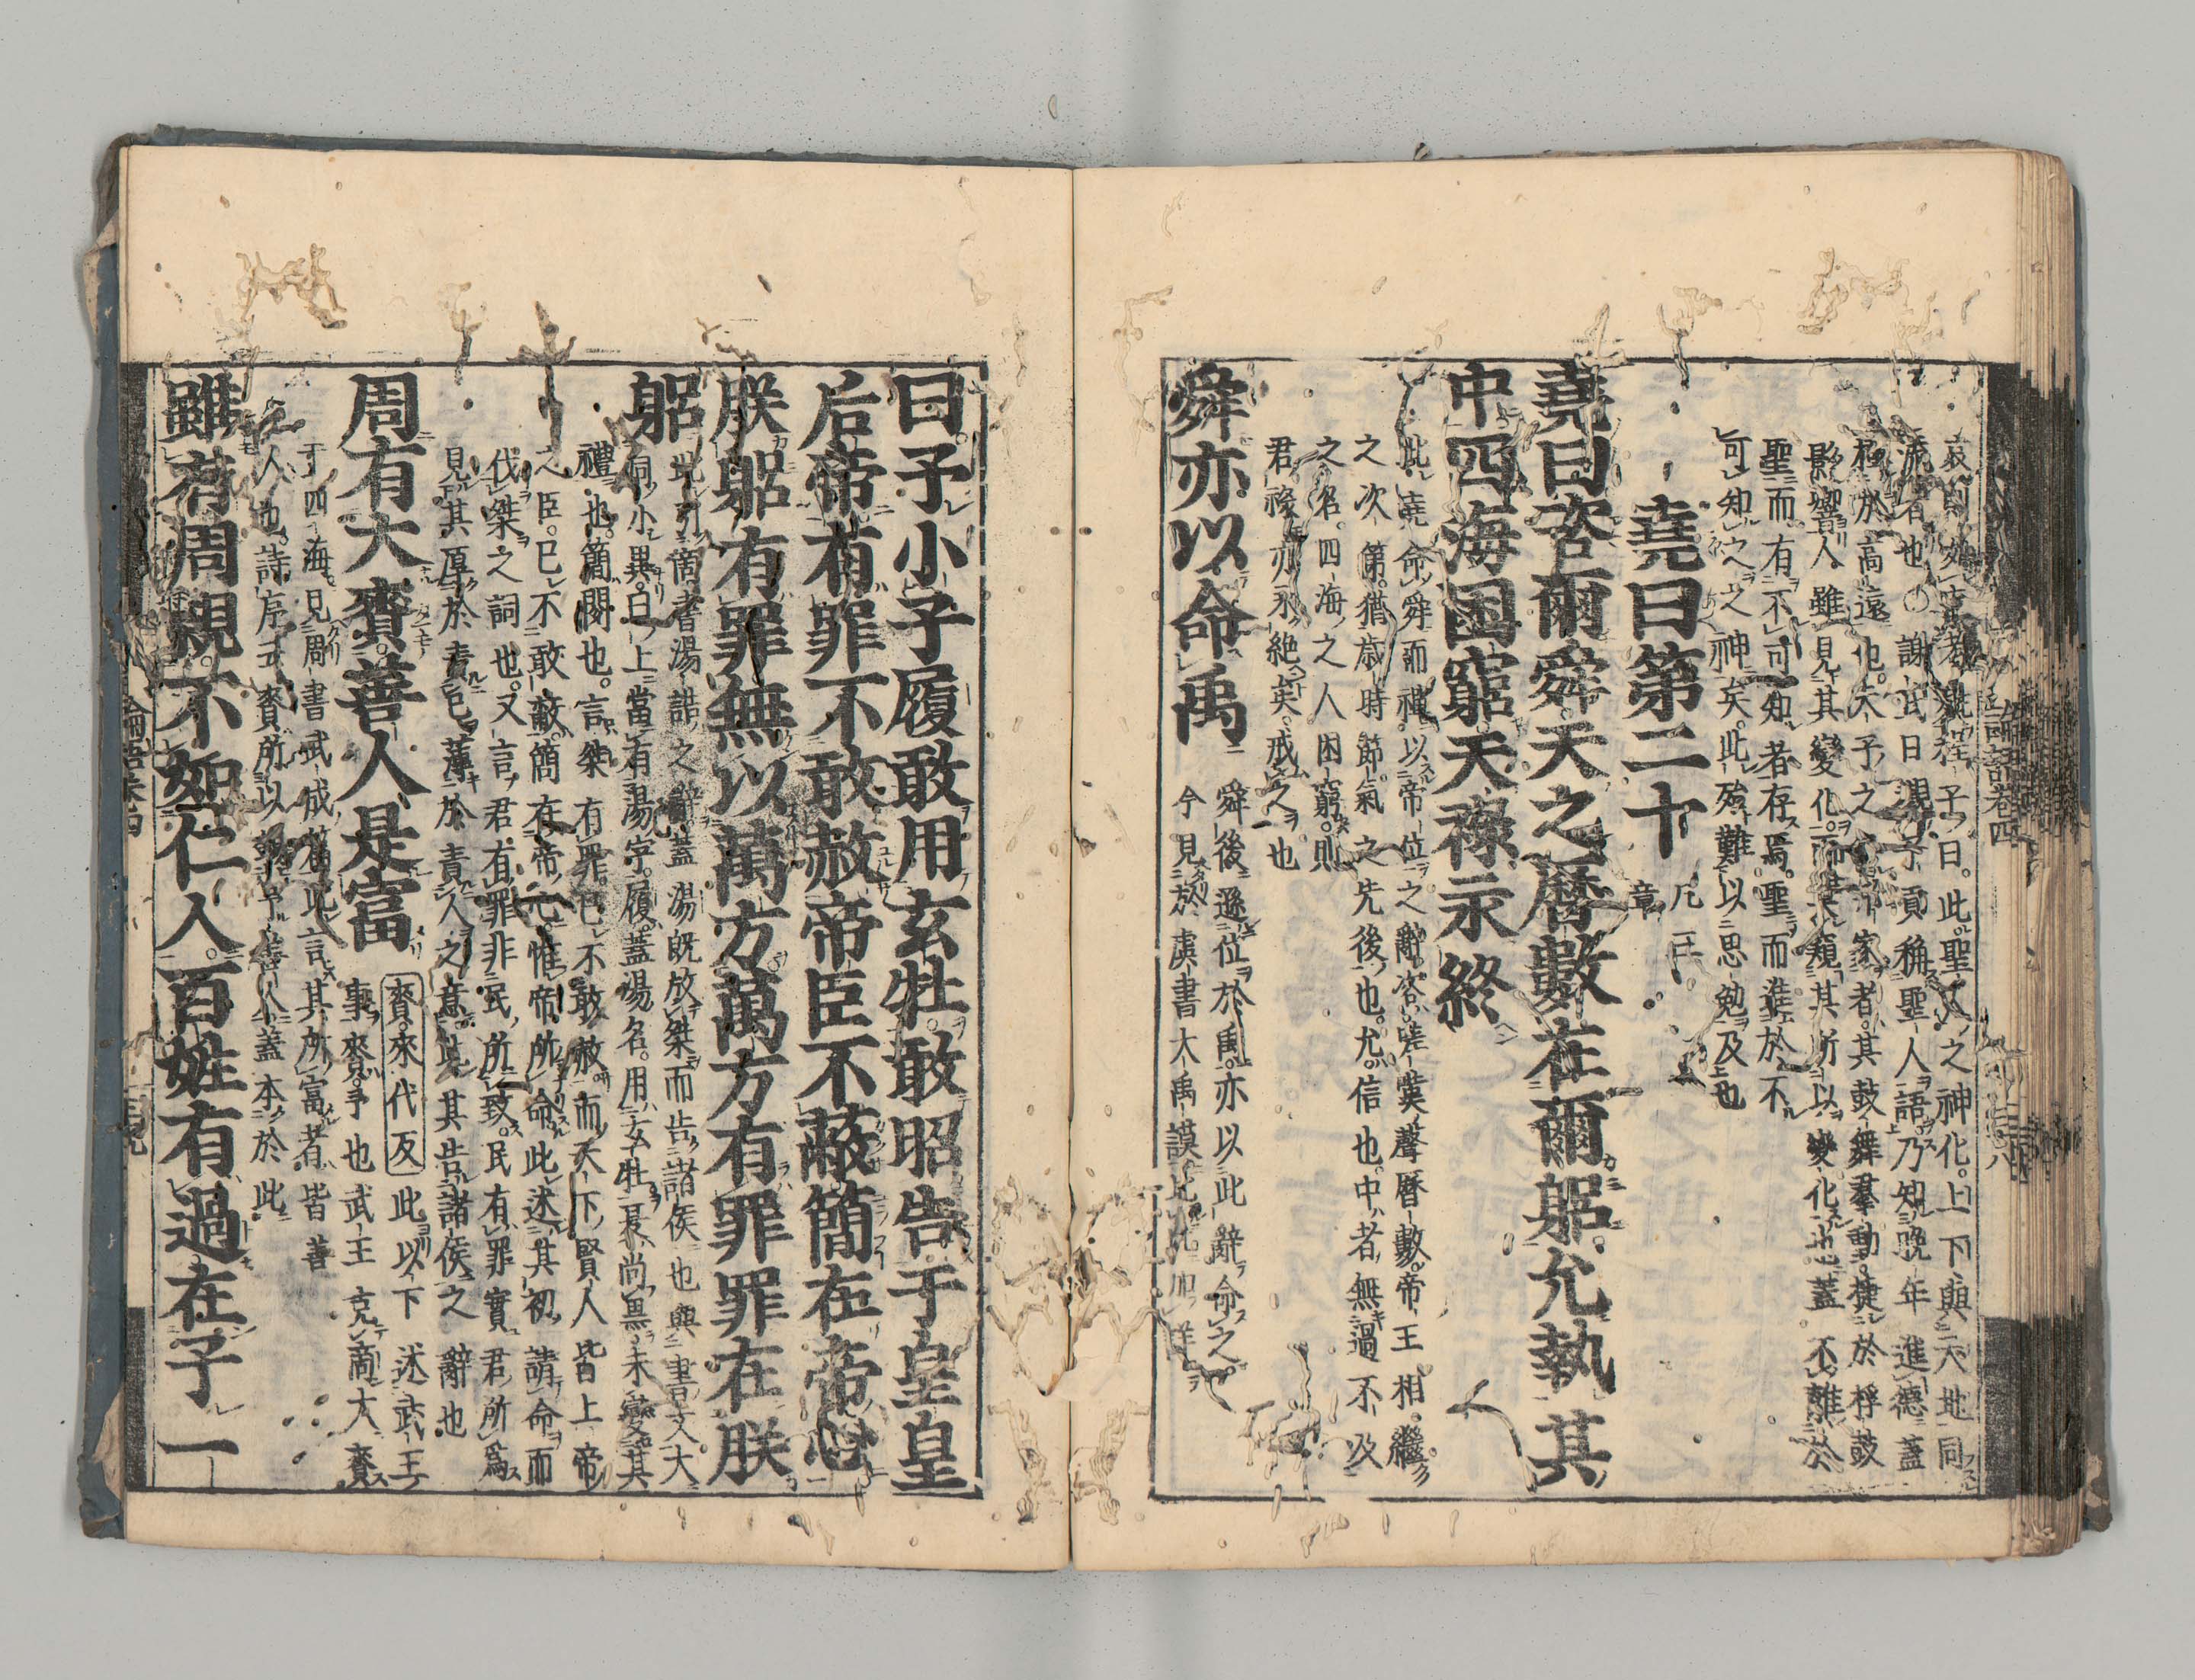 哀則如喪考妣程子曰此聖人之神化上下與天地同
流者也○謝氏曰觀子貢稱聖人語乃知晩年進德蓋
極於高遠也夫子之得邦家者其鼓舞羣動捷於桴鼓
影響人雖見其變化而莫窺其所以變化也蓋不離於
聖而有不可知者存焉聖而進於不
可知之之神矣此殆難以思勉及也
堯曰第二十 凡三章
堯曰咨爾舜天之曆數在爾躬允執其
中四海困窮天祿永終
此堯命舜而禪以帝位之辭咨嗟嘆聲曆數帝王相繼
之次第猶歲時節氣之先後也允信也中者無過不及
之名四海之人困窮則
君祿亦永絶矣戒之也
舜亦以命禹 舜後遜位於禹亦以此辭命之
今見於虞書大禹謨比此加詳
曰予小子履敢用玄牡敢昭告于皇皇
后帝有罪不敢赦帝臣不蔽簡在帝心
朕躬有罪無以萬方萬方有罪罪在朕
躬
此引商書湯誥之辭蓋湯既放桀而告諸侯也與書文大
同小異曰上當有湯字履蓋湯名用玄牡夏尚黑未變其
禮也簡閱也言桀有罪已不敢赦而天下賢人皆上帝
之臣已不敢蔽簡在帝心惟帝所命此述其初請命而
伐桀之詞也又言君有罪非民所致民有罪實君所爲
見其厚於責已薄於責人之意此其告諸侯之辭也
周有大賚善人是富 賚來代反此以下述武王
事賚予也武王克商大賚
于四海見周書武成篇此言其所富者皆善
人也詩序云賚所以錫予善人蓋本於此
雖有周親不如仁人百姓有過在予一
論語卷四